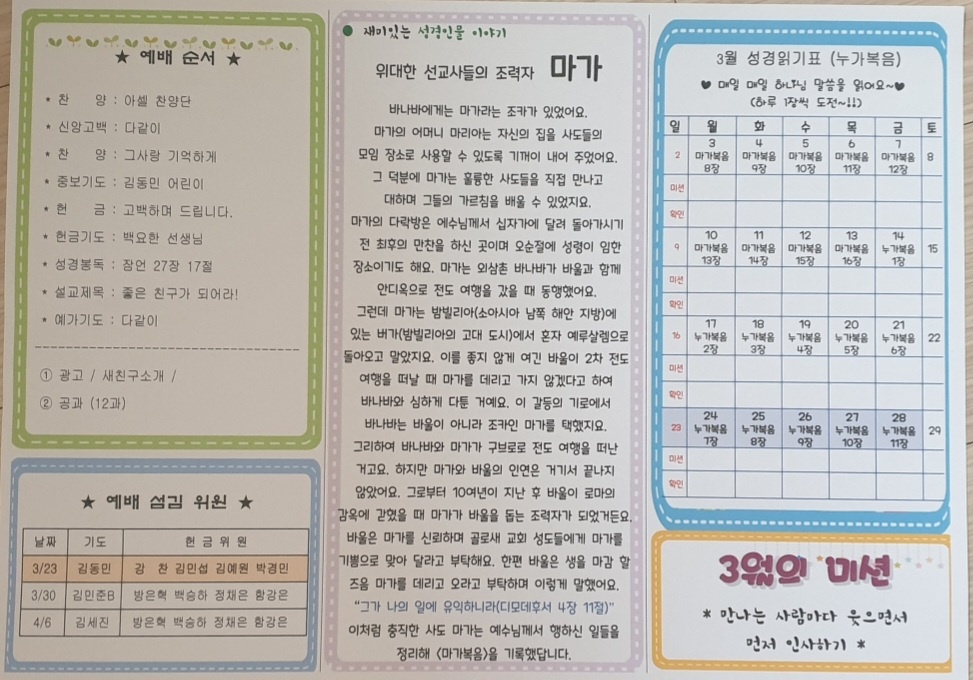 ★ 예배 순서 ★
* 찬 양 : 아셀 찬양단
* 신앙고백 : 다같이
* 찬 양 : 그사랑 기억하게
* 중보기도 : 김동민 어린이
* 헌 금 : 고백하며 드립니다.
* 헌금기도 : 백요한 선생님
* 성경봉독 : 잠언 27장 17절
* 설교제목 : 좋은 친구가 되어라!
* 예가기도 : 다같이
① 광고 / 새친구소개 /
② 공과 (12과)
★ 예배 섬김 위원 ★
날짜 기도 헌 금 위 원
3/23 김동민 강 찬 김민섭 김예원 박경민
3/30 김민준B 방은혁 백승하 정채은 함강은
4/6 김세진 방은혁 백승하 정채은 함강은
재미있는 성경인물 이야기
위대한 선교사들의 조력자 마가
바나바에게는 마가라는 조카가 있었어요.
마가의 어머니 마리아는 자신의 집을 사도들의
모임 장소로 사용할 수 있도록 기꺼이 내어 주었어요.
그 덕분에 마가는 훌륭한 사도들을 직접 만나고
대하며 그들의 가르침을 배울 수 있었지요.
마가의 다락방은 예수님께서 십자가에 달려 돌아가시기
전 최후의 만찬을 하신 곳이며 오순절에 성령이 임한
장소이기도 해요. 마가는 외삼촌 바나바가 바울과 함께
안디옥으로 전도 여행을 갔을 때 동행했어요.
그런데 마가는 밤빌리아(소아시아 남쪽 해안 지방)에
있는 버가(밤빌리아의 고대 도시)에서 혼자 예루살렘으로
돌아오고 말았지요. 이를 좋지 않게 여긴 바울이 2차 전도
여행을 떠날 때 마가를 데리고 가지 않겠다고 하여
바나바와 심하게 다툰 거예요. 이 갈등의 기로에서
바나바는 바울이 아니라 조카인 마가를 택했지요.
그리하여 바나바와 마가가 구브로로 전도 여행을 떠난
거고요. 하지만 마가와 바울의 인연은 거기서 끝나지
않았어요. 그로부터 10여년이 지난 후 바울이 로마의
감옥에 갇혔을 때 마가가 바울을 돕는 조력자가 되었거든요.
바울은 마가를 신뢰하며 골로새 교회 성도들에게 마가를
기쁨으로 맞아 달라고 부탁해요. 한편 바울은 생을 마감 할
즈음 마가를 데리고 오라고 부탁하며 이렇게 말했어요.
"그가 나의 일에 유익하니라(디모데후서 4장 11절)"
이처럼 충직한 사도 마가는 예수님께서 행하신 일들을
정리해 <마가복음>을 기록했답니다.
3월 성경읽기표 (누가복음)
♥ 매일 매일 하나님 말씀을 읽어요~♥
(하루 1장씩 도전~!!)
일 월 화 수 목 금 토
2 3 4 5 6 7 8
마가복음 마가복음 마가복음 마가복음 마가복음
8장 9장 10장 11장 12장
미션
확인
9 10 11 12 13 14 15
마가복음 마가복음 마가복음 마가복음 누가복음
13장 14장 15장 16장 1장
미션
확인
16 17 18 19 20 21 22
누가복음 누가복음 누가복음 누가복음 누가복음
2장 3장 4장 5장 6장
미션
확인
23 24 25 26 27 28 29
누가복음 누가복음 누가복음 누가복음 누가복음
7장 8장 9장 10장 11장
미션
확인
3월의 미션
* 만나는 사람마다 웃으면서
먼저 인사하기 *